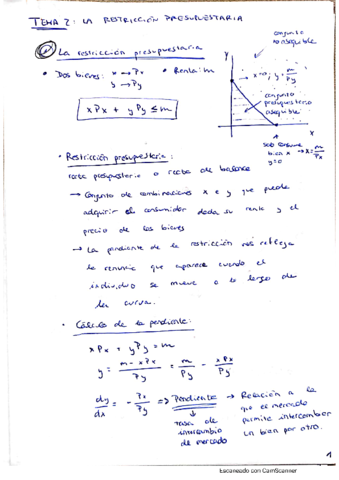 TEMA 2: LA RESTRICCIÓN PRESUPUESTARIA
La restricción presupuestaria
• Dos bienes: x → Px
y → Py
• Renta: m
xPx + yPy ≤ m
y
x
conjunto
no asequible
x=0, y = m/Py
conjunto
presupuestario
asequible
solo consume
bien x → x = m/Px
y=0
• Restricción presupuestaria:
recta presupuestaria o recta de balance
→ Conjunto de combinaciones x e y que puede
adquirir el consumidor dada su renta y el
precio de los bienes
→ La pendiente de la restricción nos refleja
la renuncia que aparece cuando el
individuo se mueve a lo largo de
la curva.
• Cálculo de la pendiente:
xPx + yPy = m
y = m - xPx / Py = m / Py - xPx / Py
dy/dx = - Px/Py => Pendiente → Relación a la
que el mercado
permite intercambiar
un bien por otro.
tasa de
intercambio
de mercado
1
Escaneado con CamScanner